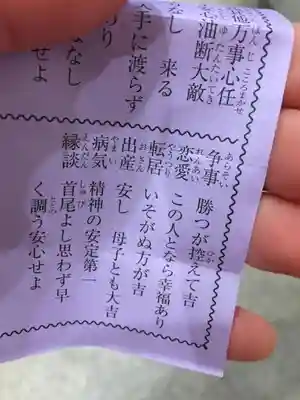 事心任
油断大敵
なし 来る
手に渡らず
り
なし
せよ
争事 勝つが控えて吉
恋愛 この人となら幸福あり
転居 いそがぬ方が吉
出産 安し 母子とも大吉
病気 精神の安定第一
縁談 首尾よし思わず早
く調う安心せよ